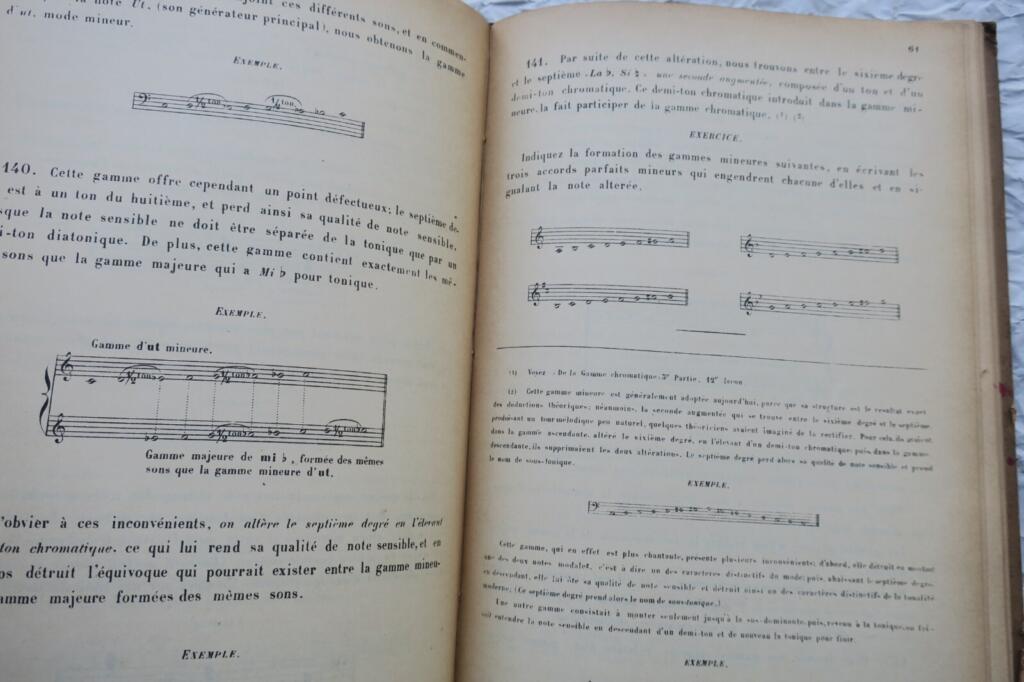 la note Ut. (son générateur principal), nous obtenons la gamme
d'ut, mode mineur.
EXEMPLE.
½ ton ½ ton
140. Cette gamme offre cependant un point défectueux; le septième de-
est à un ton du huitième, et perd ainsi sa qualité de note sensible,
sque la note sensible ne doit être séparée de la tonique que par un
i-ton diatonique. De plus, cette gamme contient exactement les mê-
sons que la gamme majeure qui a Mi ♭ pour tonique.
EXEMPLE.
Gamme d'ut mineure.
½ ton ½ ton
½ ton ½ ton
Gamme majeure de mi ♭, formée des mêmes
sons que la gamme mineure d'ut.
'obvier à ces inconvénients, on altère le septième degré en l'élevant
ton chromatique. ce qui lui rend sa qualité de note sensible, et en
os détruit l'équivoque qui pourrait exister entre la gamme mineu-
amme majeure formées des mèmes sons.
EXEMPLE.
61
141. Par suite de cette altération, nous trouvons entre le sixième degré
et le septième. La ♭. Si ♮. une seconde augmentée, composée d'un ton et d'un
demi-ton chromatique. Ce demi-ton chromatique introduit dans la gamme mi-
neure. la fait participer de la gamme chromatique. (1) (2)
EXERCICE.
Indiquez la formation des gammes mineures suivantes, en écrivant les
trois accords parfaits mineurs qui engendrent chacune d'elles et en si-
gnalant la note alterée.
(1) Voyez - De la Gamme chromatique. 3e Partie. 12e leçon
(2) Cette gamme mineure est généralement adoptée aujourd'hui, parce que sa structure est le résultat exact
des déductions théoriques; néanmoins, la seconde augmentée qui se trouve entre le sixième degré et le septième,
produisant un tour mélodique peu naturel, quelques théoriciens avaient imaginé de la rectifier. Pour cela, ils avaient,
dans la gamme ascendante, altéré le sixième degré, en l'élevant d'un demi-ton chromatique; puis dans la gamme
descendante, ils supprimaient les deux altérations. Le septième degré perd alors sa qualité de note sensible et prend
le nom de sous-tonique.
EXEMPLE.
Cette gamme, qui en effet est plus chantante, présente plusieurs inconvénients; d'abord, elle détruit en montant
une des deux notes modales, c'est à dire un des caractères distinctifs du mode; puis, abaissant le septième degré,
en descendant, elle lui ôte sa qualité de note sensible et détruit ainsi un des caractères distinctifs de la tonalité
moderne. (Ce septième degré prend alors le nom de sous-tonique.)
Une autre gamme consistait à monter seulement jusqu'à la sus-dominante, puis, revenu à la tonique, on fai-
sait entendre la note sensible en descendant d'un demi-ton et de nouveau la tonique pour finir.
EXEMPLE.